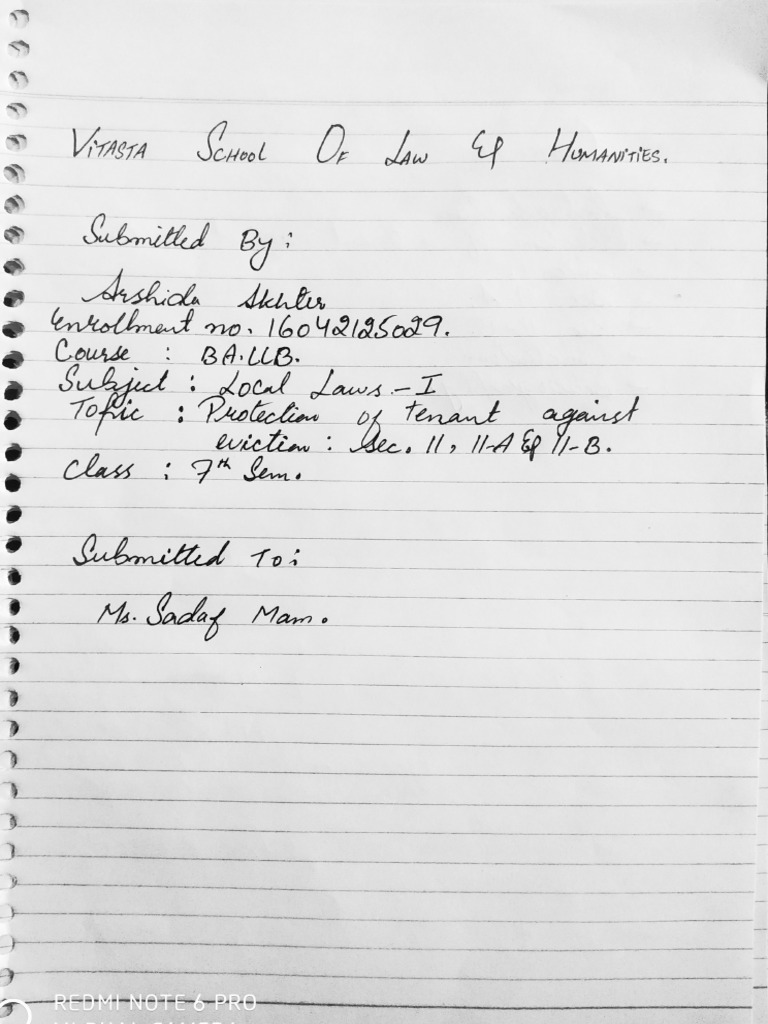 VITASTA SCHOOL OF LAW & HUMANITIES.
Submitted By :
Arshida Akhter
Enrollment no. 16042125029.
Course : BA.LLB.
Subject : Local Laws - I
Topic : Protection of tenant against
eviction : Sec. 11, 11-A & 11-B.
Class : 7th Sem.
Submitted To :
Ms. Sadaf Mam.
REDMI NOTE 6 PRO